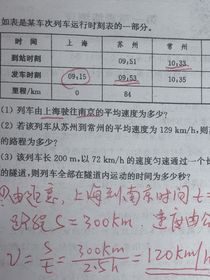 如表是某车次列车运行时刻表的一部分。
时间 上海 苏州 常州
到站时刻 09,51 10,33
发车时刻 09,15 09,53 10,35
里程/km 0 84
(1) 列车由上海驶往南京的平均速度为多少?
(2) 若该列车从苏州到常州的平均速度为 129 km/h,则
的路程为多少?
(3) 该列车长 200 m,以 72 km/h 的速度匀速通过一个长
的隧道,则列车全部在隧道内运动的时间为多少?
①由题意,上海到南京时间 t=
路程 S=300km. 速度由公
v=S/t=300km/2.5h=120km/h